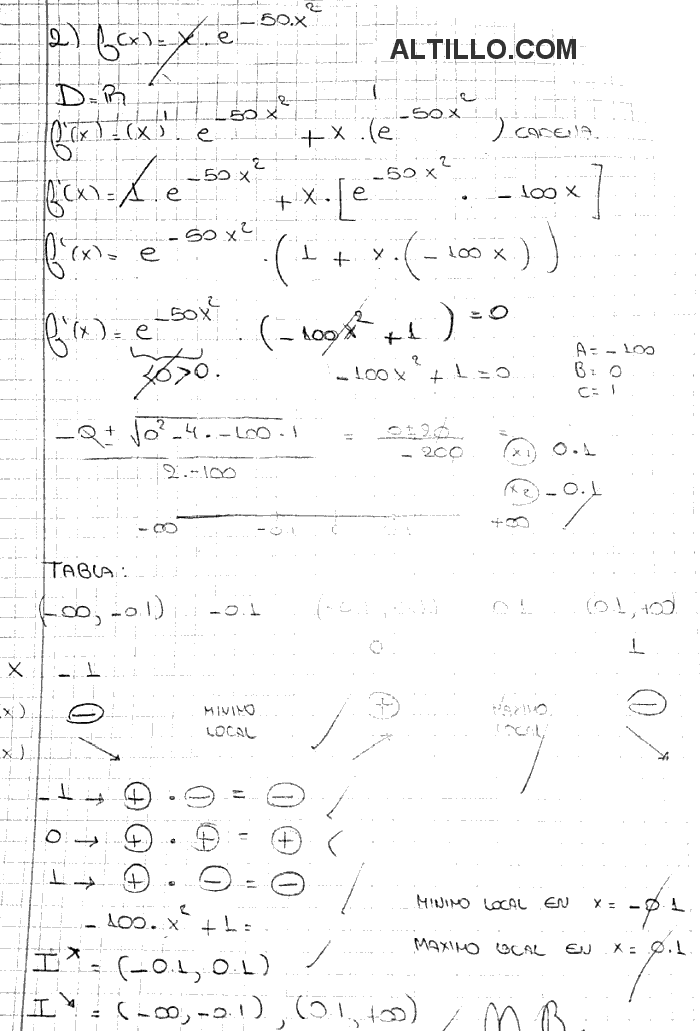 2) f(x) = x · e^{-50·x²}
ALTILLO.COM
D = R
f'(x) = (x)' · e^{-50x²} + x · (e^{-50x²})' CADENA.
f'(x) = 1 · e^{-50x²} + x · [e^{-50x²} · -100x]
f'(x) = e^{-50x²} · (1 + x · (-100x))
f'(x) = e^{-50x²} · (-100x² + 1) = 0
>0. -100x² + 1 = 0
A = -100
B = 0
C = 1
-0 ± √0² - 4 · -100 · 1 / 2 · -100 = 0 ± 20 / -200 =
x1 0.1
x2 -0.1
-∞ -0.1 0.1 +∞
TABLA:
(-∞, -0.1) -0.1 (-0.1, 0.1) 0.1 (0.1, +∞)
x -1 0 1
x) ⊖ MINIMO LOCAL ⊕ MAXIMO LOCAL ⊖
x) ↘ ↗ ↘
-1 → ⊕ · ⊖ = ⊖
0 → ⊕ · ⊕ = ⊕
1 → ⊕ · ⊖ = ⊖
-100 · x² + 1 =
MINIMO LOCAL EN x = -0.1
MAXIMO LOCAL EN x = 0.1
I↗ = (-0.1, 0.1)
I↘ = (-∞, -0.1), (0.1, +∞)
M B.